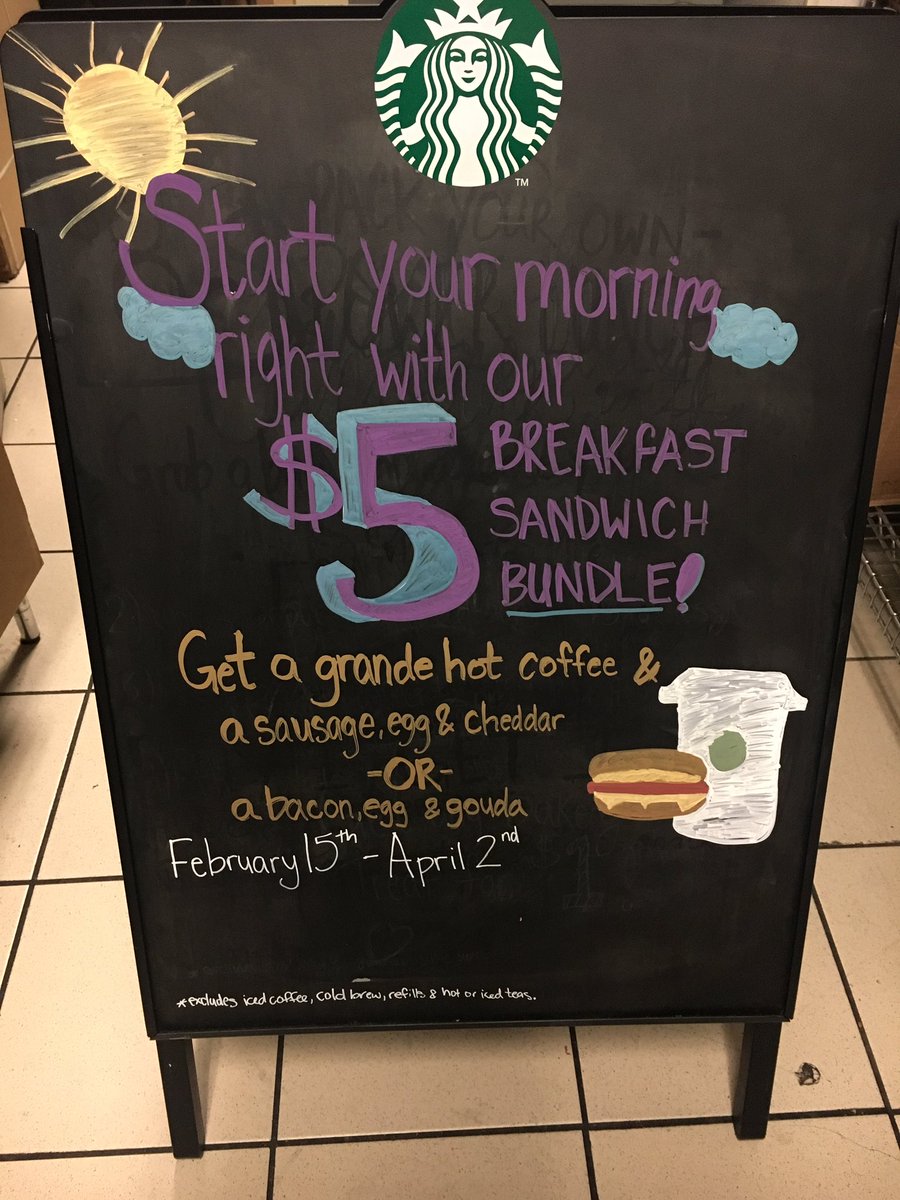 TM
Start your morning
right with our
$5 BREAKFAST
SANDWICH
BUNDLE!
Get a grande hot coffee &
a sausage, egg & cheddar
-OR-
a bacon, egg & gouda
February 15th - April 2nd
*excludes iced coffee, cold brew, refills & hot or iced teas.